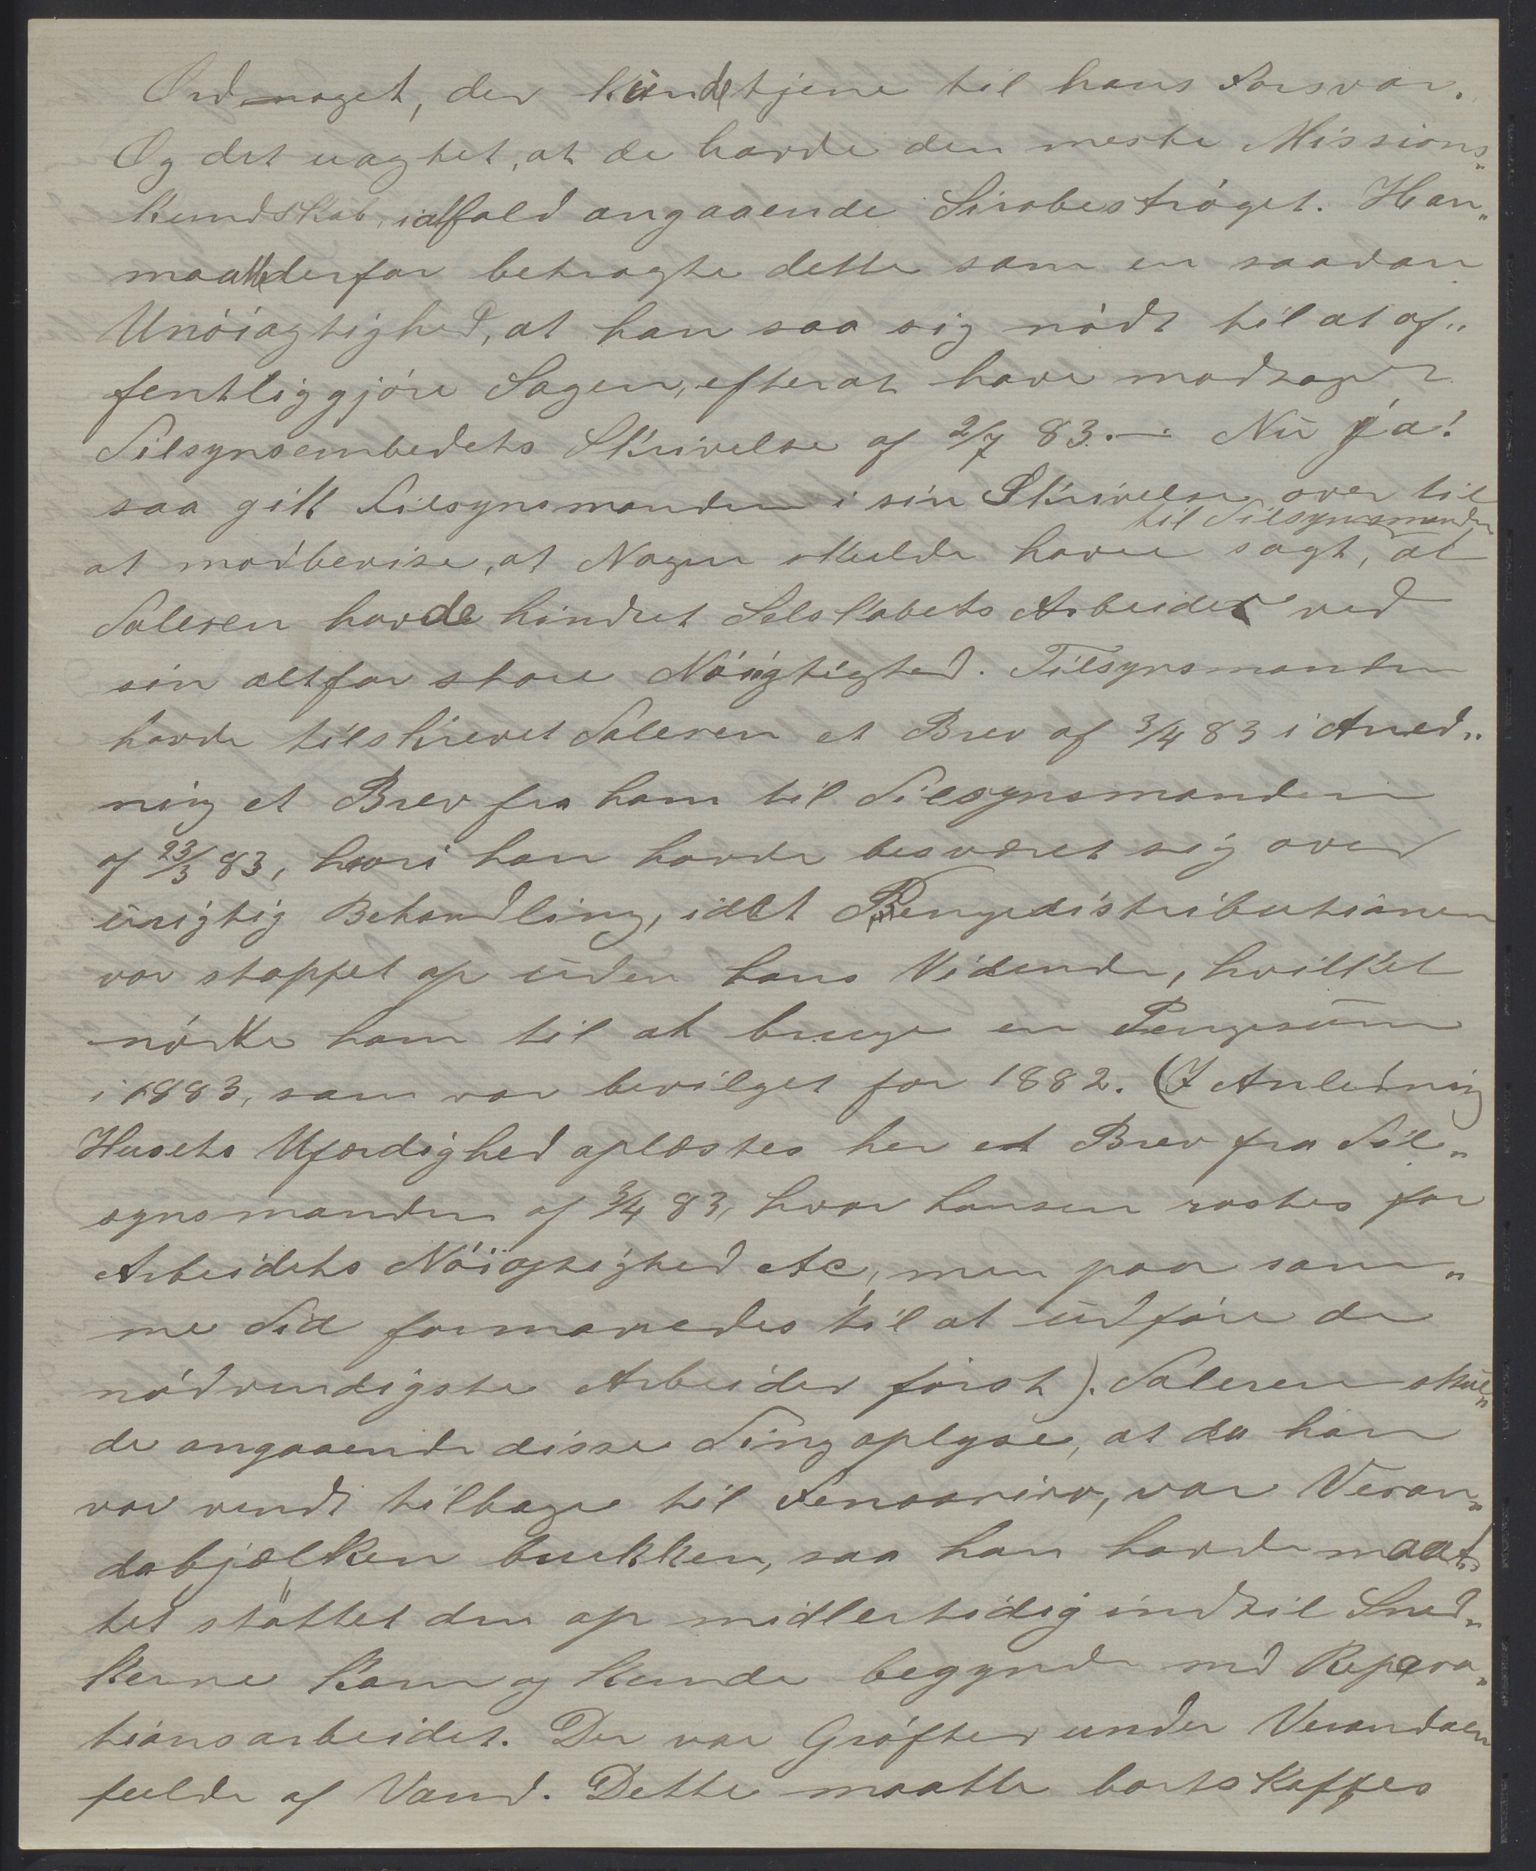 Ord noget, der kunde tjene til hans Forsvar.
Og det uagtet, at de havde den meste Missions„
kundskab, ialfald angaaende Sirabestrøget. Han„
maatte derfor betragte dette som en saadan
Unøiagtighed, at han saa sig nødt til at of„
fentliggjøre Sagen, efterat have modtaget
Tilsynsembedets Skrivelse af 2/7 83. — Nu ja!
saa gik Tilsynsmanden i sin Skrivelse over til
til Tilsynsmanden
at modbevise, at Nogen skulde have sagt, at
Taleren havde hindret Selskabets Arbeider ved
sin altfor store Nøiagtighed. Tilsynsmanden
havde tilskrevet Taleren et Brev af 3/4 83 i Anled„
ning et Brev fra ham til Tilsynsmanden
af 23/3 83, hvori han havde besværet sig over
urigtig Behandling, idet Pengedistributionen
var stoppet op uden hans Vidende, hvilket
nødte ham til at bruge en Pengesum
i 1883, som var bevilget for 1882. (I Anledning
Husets Uferdighed oplæstes her et Brev fra Til„
synsmanden af 3/4 83, hvor hansen rostes for
Arbeidets Nøiagtighed etc, men paa sam„
me Tid formanedes til at udføre de
nødvendigste Arbeider først). Taleren skul„
de angaaende disse Ting oplyse, at da han
var vendt tilbage til Fenoarivo, var Veran„
dabjælken brukken, saa han havde maat„
tet støttet den op midlertidig indtil Sned„
kerne kom og kunde begynde med Repara„
tionsarbeidet. Der var Grøfter under Verandaen
fulde af Vand. Dette maatte bortskaffes